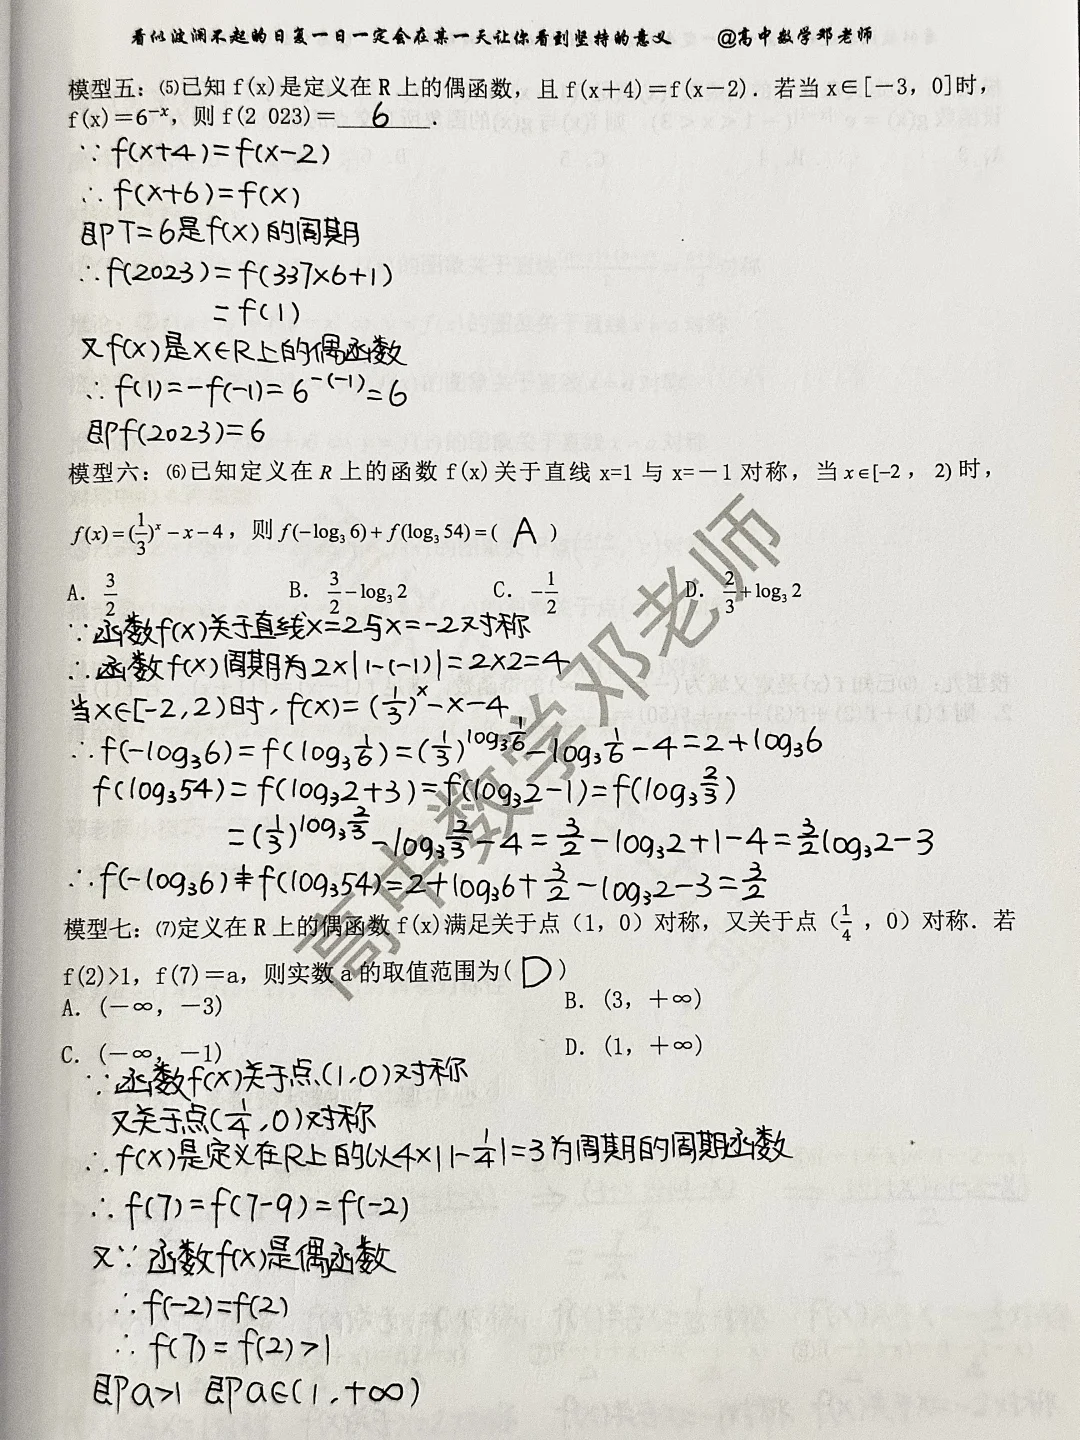 看似波澜不起的日复一日一定会在某一天让你看到坚持的意义 @高中数学邓老师
模型五：⑸已知 f(x)是定义在 R 上的偶函数，且 f(x＋4)＝f(x－2)．若当 x∈[－3，0]时，
f(x)＝6⁻ˣ，则 f(2 023)＝ 6 ．
∵f(x+4)=f(x-2)
∴f(x+6)=f(x)
即T=6是f(x)的周期
∴f(2023)=f(337×6+1)
=f(1)
又f(x)是x∈R上的偶函数
∴f(1)=-f(-1)=6^-(-1)=6
即f(2023)=6
模型六：⑹已知定义在 R 上的函数 f(x)关于直线 x=1 与 x=－1 对称，当 x∈[-2，2) 时，
f(x)=(1/3)^x-x-4，则 f(-log₃6)+f(log₃54)=( A )
A. 3/2 B. 3/2-log₃2 C. -1/2 D. 2/3+log₃2
∵函数f(x)关于直线x=2与x=-2对称
∴函数f(x)周期为2×|1-(-1)|=2×2=4
当x∈[-2,2)时,f(x)=(1/3)^x-x-4
∴f(-log₃6)=f(log₃1/6)=(1/3)^log₃1/6-log₃1/6-4=2+log₃6
f(log₃54)=f(log₃2+3)=f(log₃2-1)=f(log₃2/3)
=(1/3)^log₃2/3-log₃2/3-4=3/2-log₃2+1-4=3/2log₃2-3
∴f(-log₃6)+f(log₃54)=2+log₃6+3/2-log₃2-3=3/2
模型七：⑺定义在 R 上的偶函数 f(x)满足关于点（1，0）对称，又关于点（1/4，0）对称．若
f(2)>1，f(7)＝a，则实数 a 的取值范围为( D )
A. (－∞，－3) B. (3，＋∞)
C. (－∞，－1) D. (1，＋∞)
∵函数f(x)关于点(1,0)对称
又关于点(1/4,0)对称
∴f(x)是定义在R上的以4×|1-1/4|=3为周期的周期函数
∴f(7)=f(7-9)=f(-2)
又∵函数f(x)是偶函数
∴f(-2)=f(2)
∴f(7)=f(2)>1
即a>1 即a∈(1,+∞)
高中数学邓老师